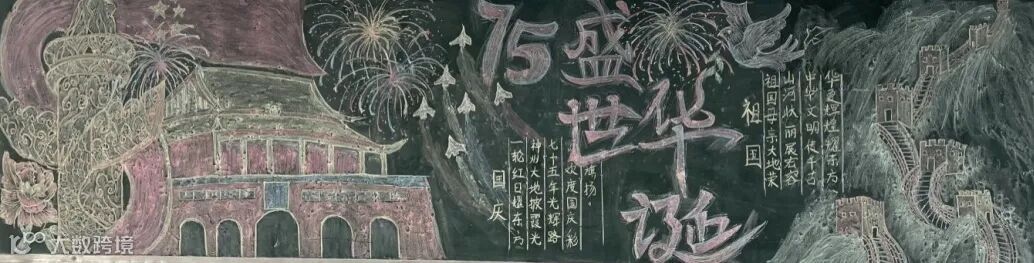 75
盛世华诞
国庆
一轮红日耀东方
神州大地披霞光
七十五年光辉路
欢度国庆彩
旗扬。
祖国
华夏辉煌耀东方
中华文明传千古
山河状丽展宏容
祖国母亲大地荣
大数跨境